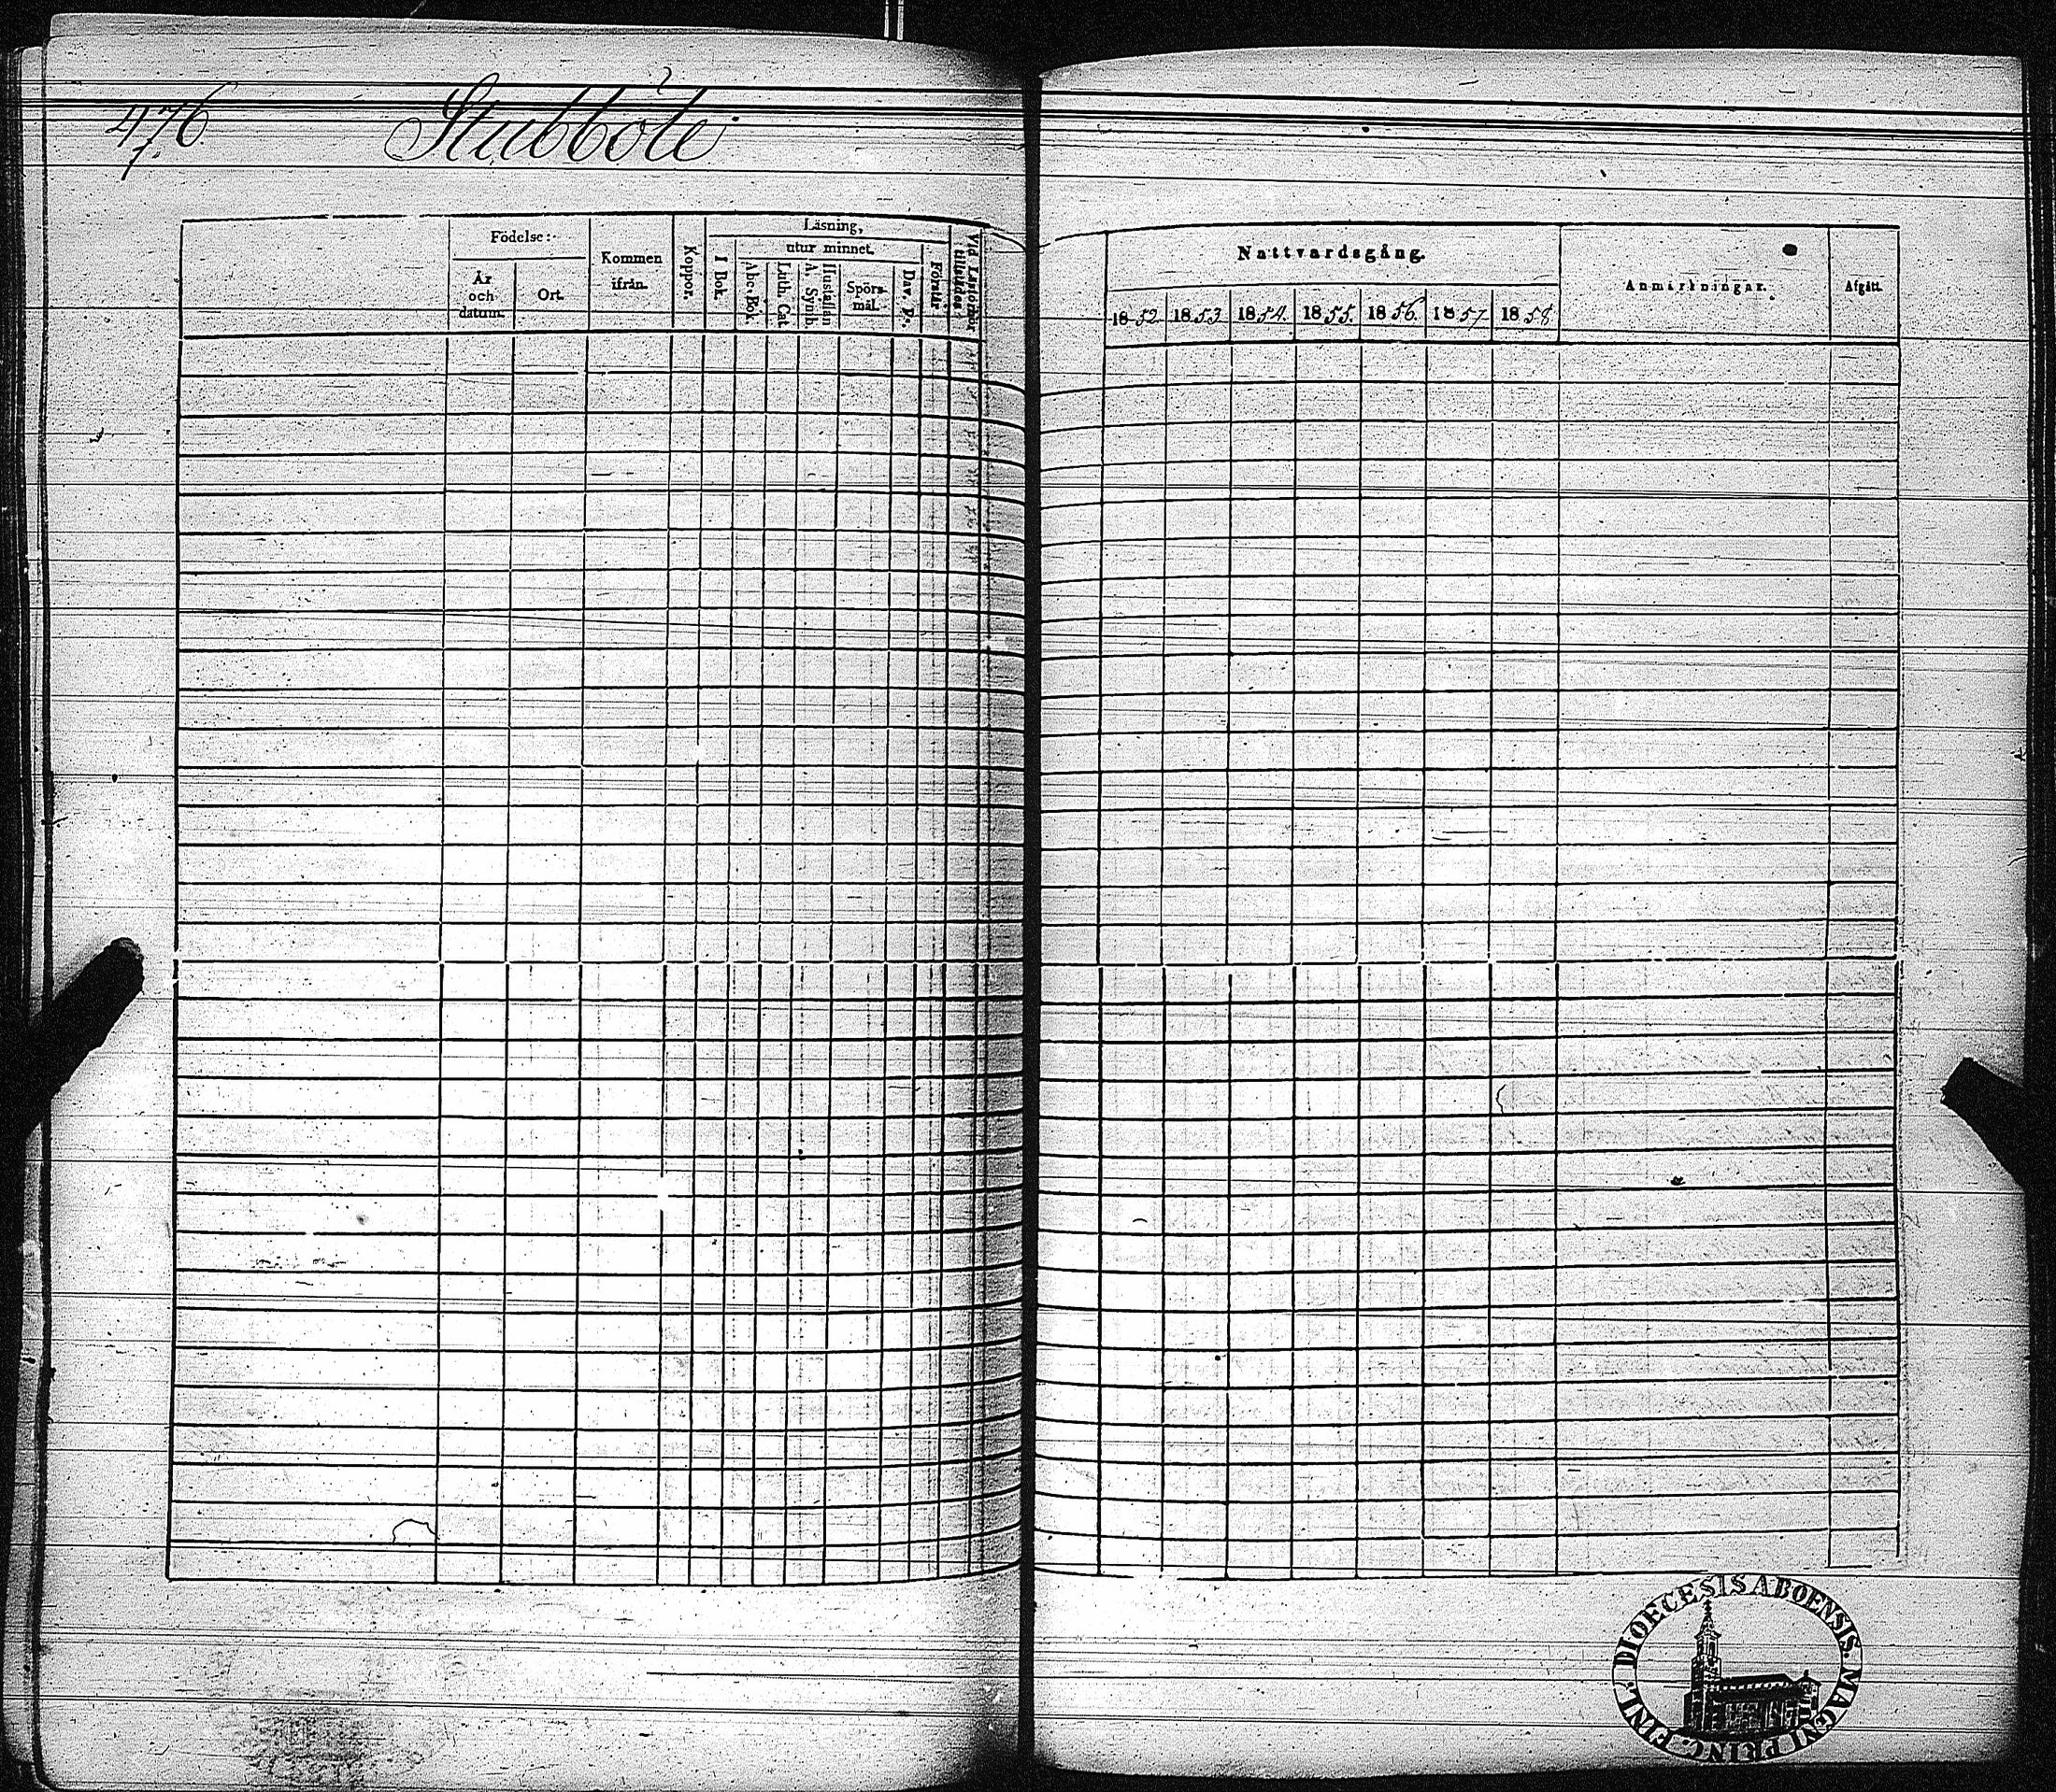 476.
Stubböle
Födelse:
År och datum.
Ort.
Kommen ifrån.
Koppor.
Läsning,
I Bok.
utur minnet.
Abc. Bok.
Luth. Cat
Hustaflan
A. Symb.
Spörsmål.
Dav. Ps.
Förstår
Vid Läsförhör tillstädes.
Nattvardsgång.
1852. 1853 1854. 1855. 1856. 1857 1858
Anmärkningar.
Afgått.
DIOECESIS ABOENSIS. MAGNI PRINC. FINL.